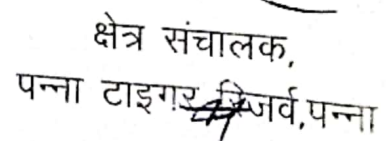 क्षेत्र संचालक,
पन्ना टाइगर रिजर्व,पन्ना